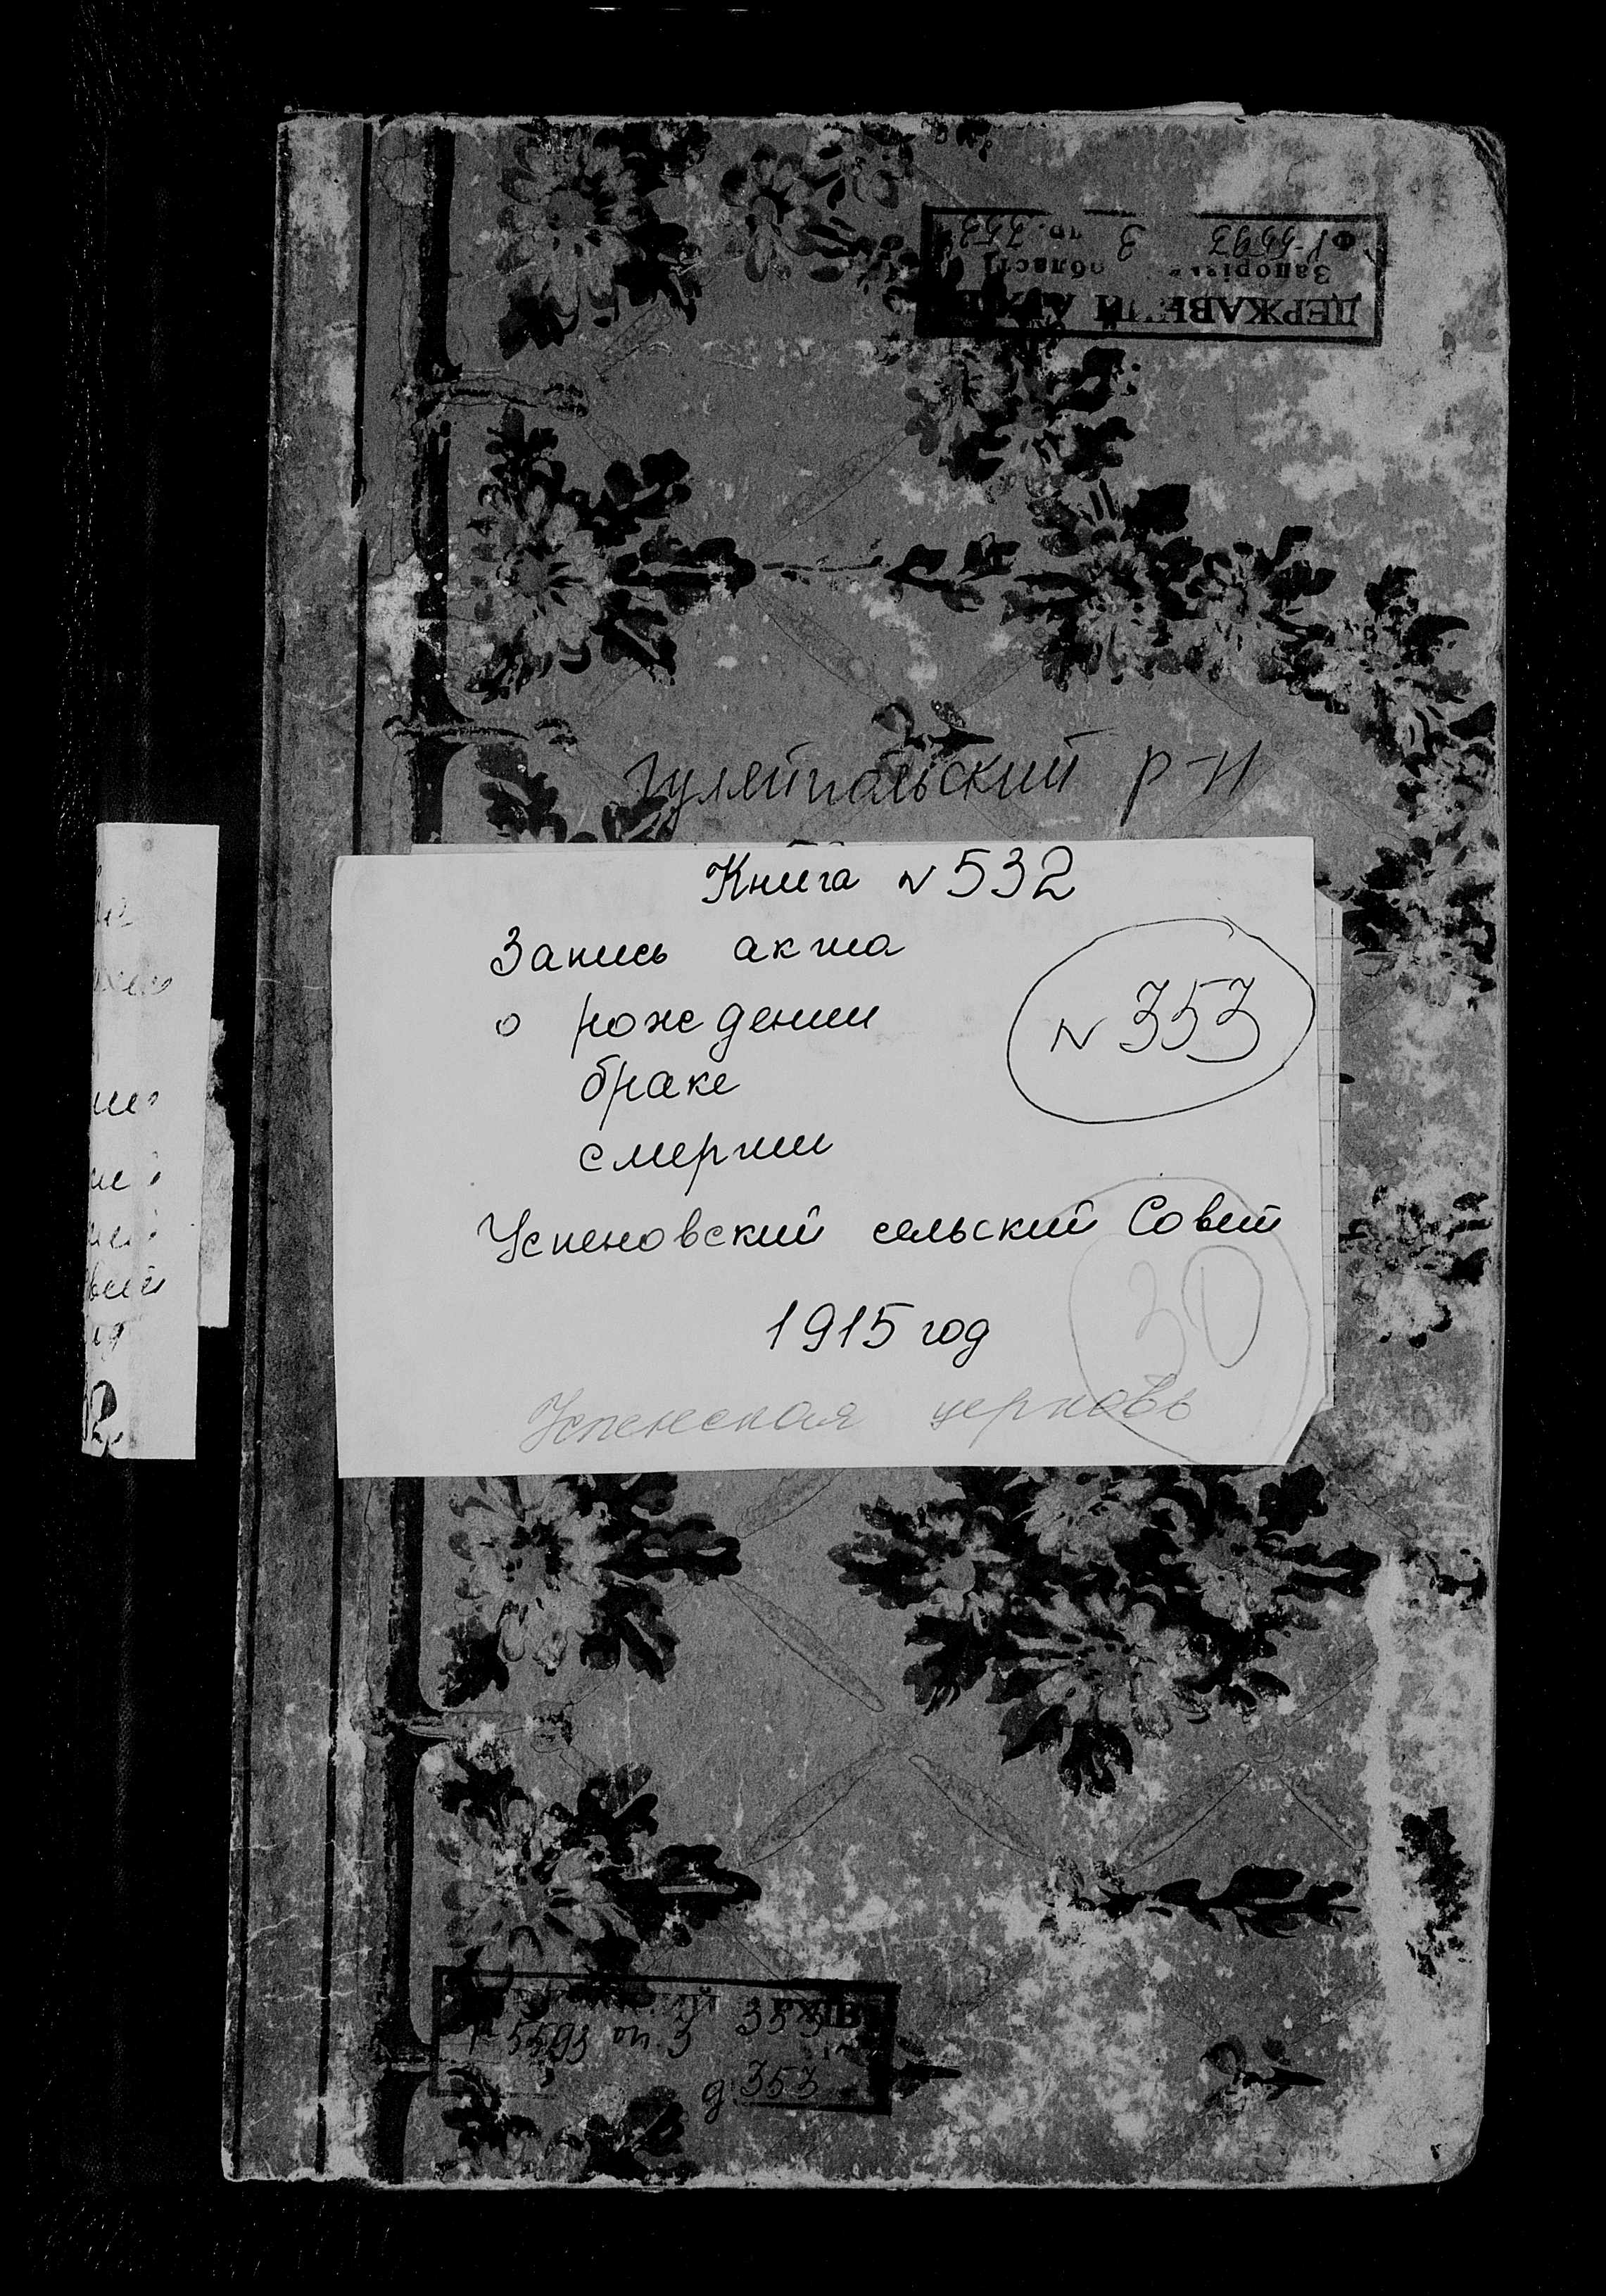 ДЕРЖАВНИЙ АРХІВ
області
Ф Р-5593 3 353
Гуляйпольский р-н
Книга N 532
Запись акта
о рождении
браке
смерти
N 353
Успеновский сельский Совет
30
1915 год
Успенская церковь
АРХІВ
Р-5593 оп. 3 353
д. 353